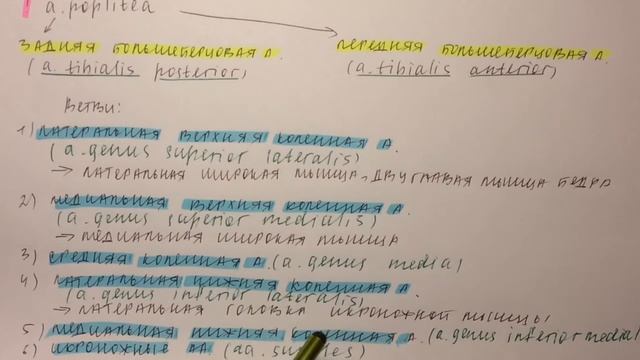 ! a. poplitea
ЗАДНЯЯ БОЛЬШЕБЕРЦОВАЯ А.
(a. tibialis posterior)
ПЕРЕДНЯЯ БОЛЬШЕБЕРЦОВАЯ А.
(a. tibialis anterior)
ВЕТВИ:
1) ЛАТЕРАЛЬНАЯ ВЕРХНЯЯ КОЛЕННАЯ А.
(a. genus superior lateralis)
→ ЛАТЕРАЛЬНАЯ ШИРОКАЯ МЫШЦА, ДВУГЛАВАЯ МЫШЦА БЕДРА
2) МЕДИАЛЬНАЯ ВЕРХНЯЯ КОЛЕННАЯ А.
(a. genus superior medialis)
→ МЕДИАЛЬНАЯ ШИРОКАЯ МЫШЦА
3) СРЕДНЯЯ КОЛЕННАЯ А. (a. genus media)
4) ЛАТЕРАЛЬНАЯ НИЖНЯЯ КОЛЕННАЯ А.
(a. genus inferior lateralis)
→ ЛАТЕРАЛЬНАЯ ГОЛОВКА ИКРОНОЖНОЙ МЫШЦЫ
5) МЕДИАЛЬНАЯ НИЖНЯЯ А. (a. genus inferior medial
6) ИКРОНОЖНЫЕ АА. (aa.